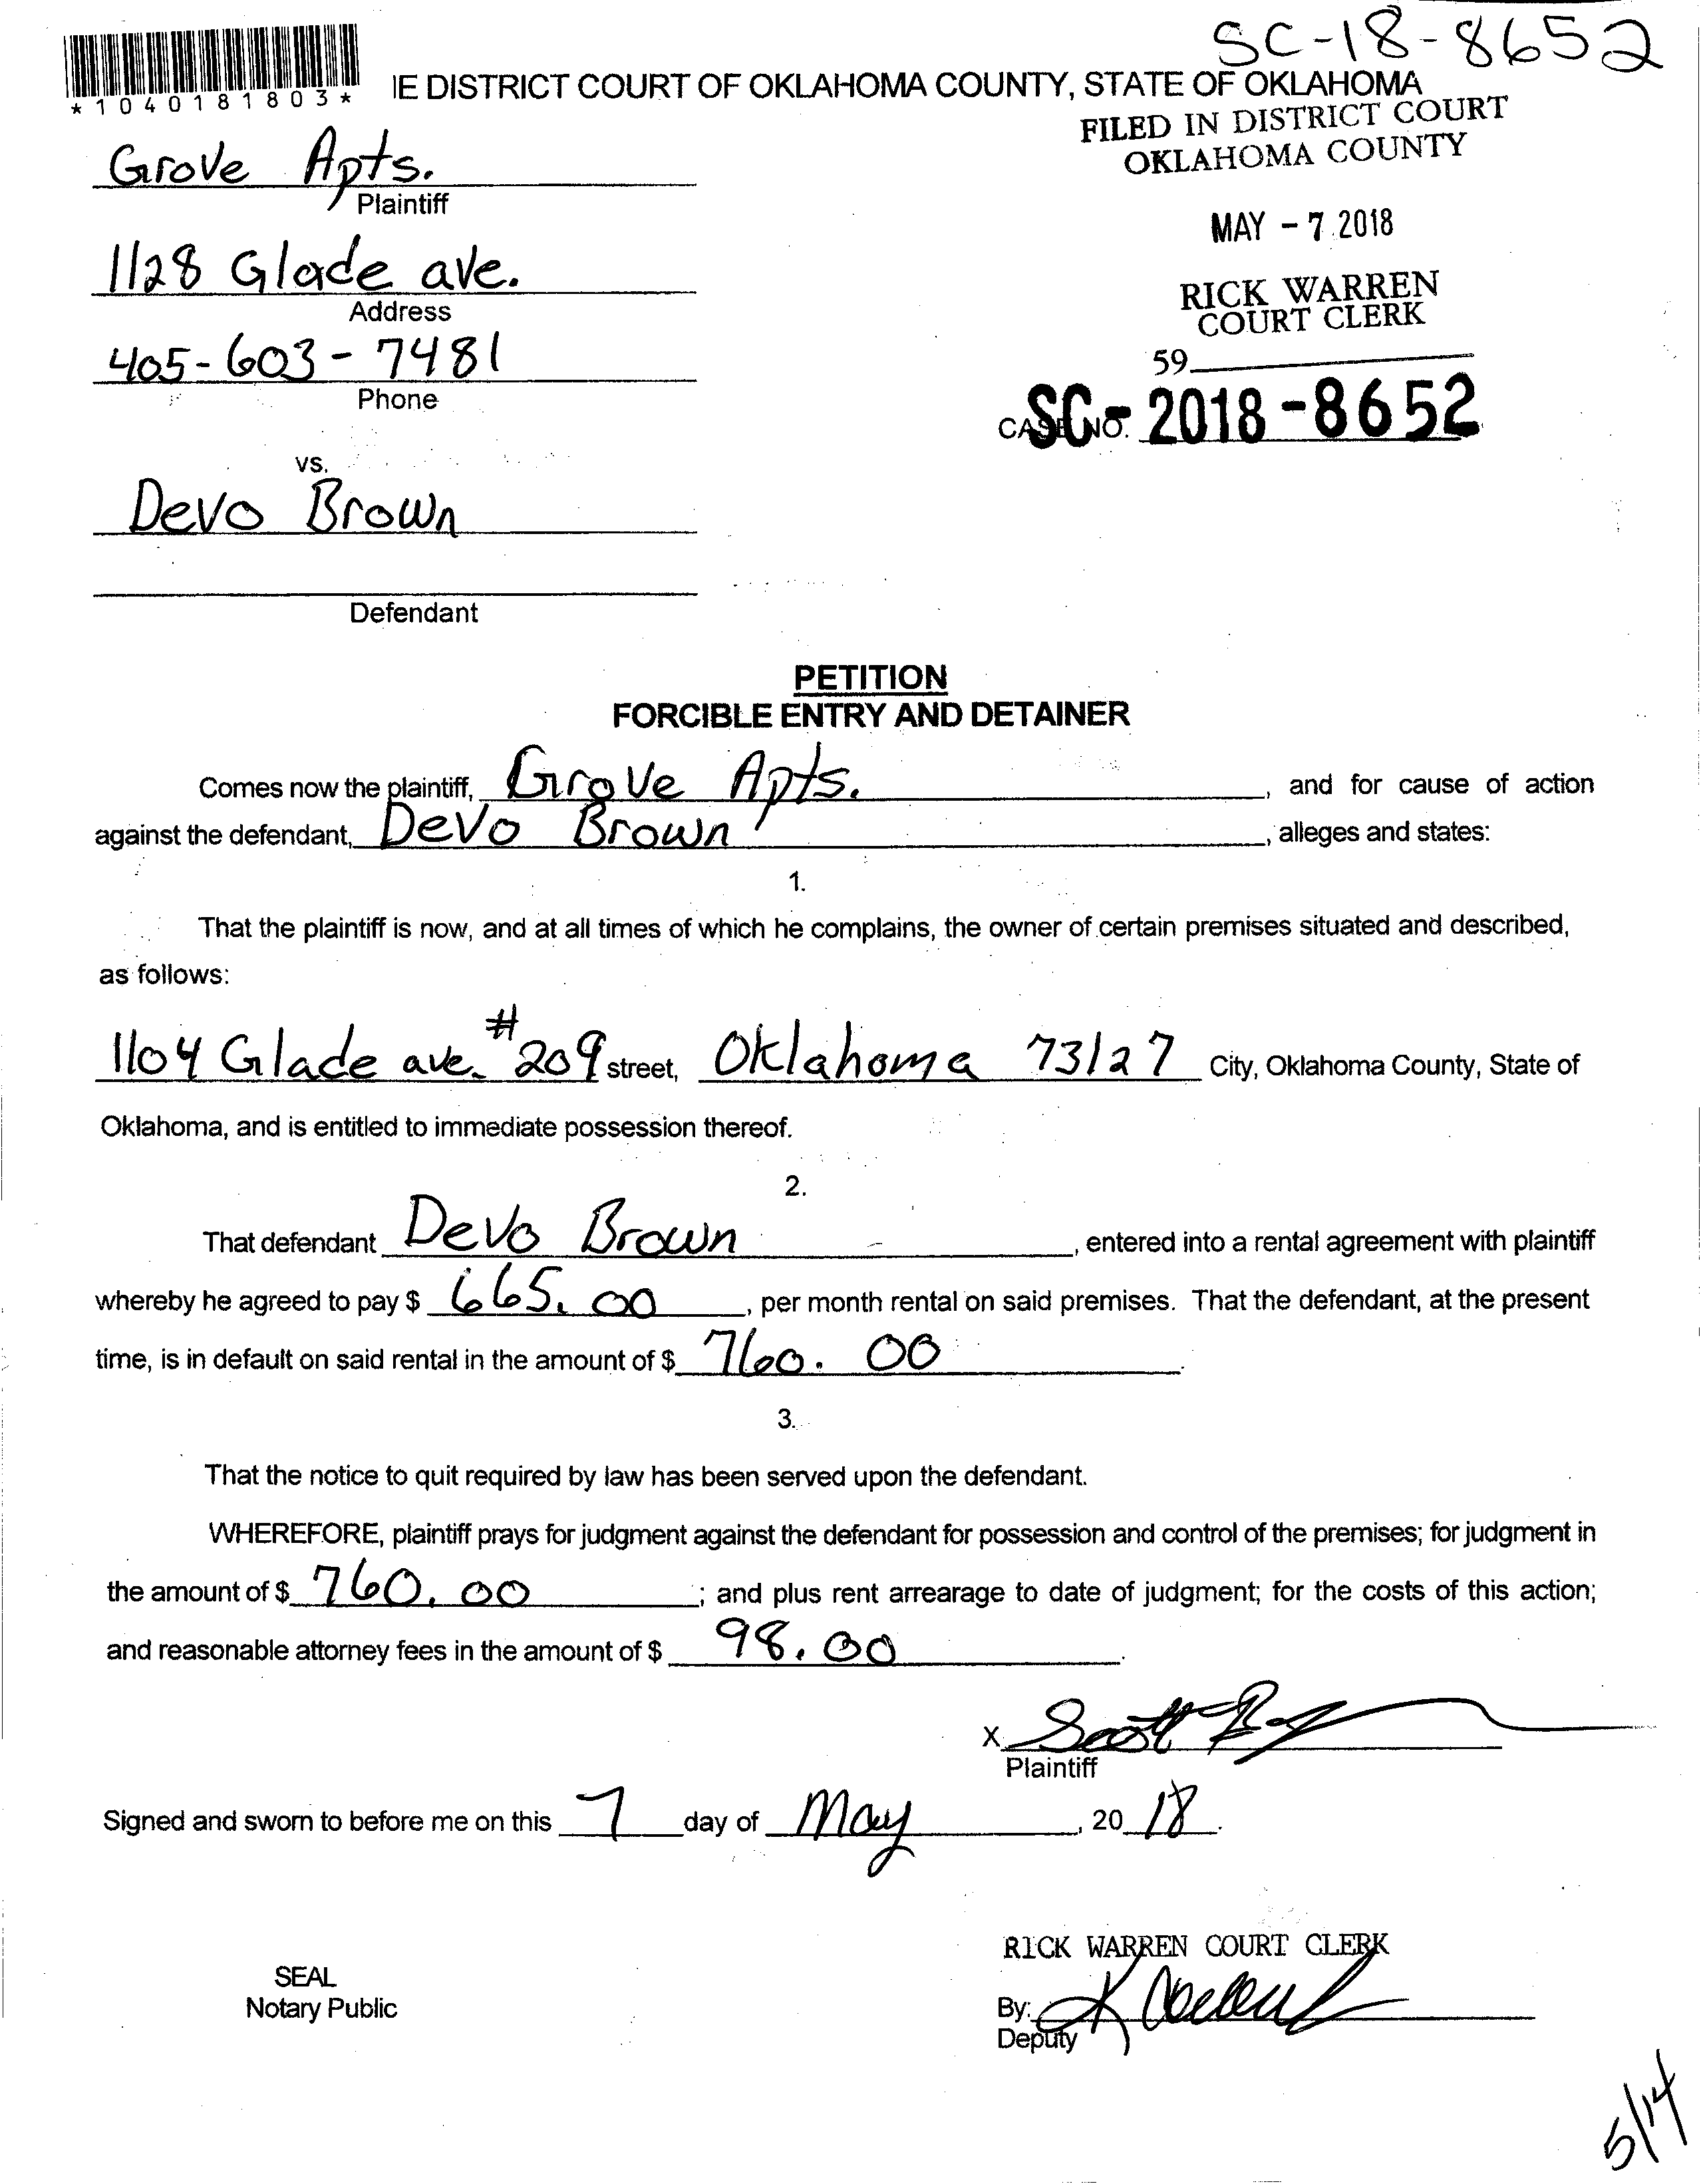 SC-18-8652
*1040181803*
IE DISTRICT COURT OF OKLAHOMA COUNTY, STATE OF OKLAHOMA
FILED IN DISTRICT COURT
OKLAHOMA COUNTY
Grove Apts.
Plaintiff
MAY - 7 2018
1128 Glade ave.
Address
RICK WARREN
COURT CLERK
405-603-7481
Phone
59
CASE NO. SC-2018-8652
vs.
Devo Brown
Defendant
PETITION
FORCIBLE ENTRY AND DETAINER
Comes now the plaintiff, Grove Apts. , and for cause of action
against the defendant, Devo Brown , alleges and states:
1.
That the plaintiff is now, and at all times of which he complains, the owner of certain premises situated and described,
as follows:
1104 Glade ave. #209 street, Oklahoma 73127 City, Oklahoma County, State of
Oklahoma, and is entitled to immediate possession thereof.
2.
That defendant Devo Brown , entered into a rental agreement with plaintiff
whereby he agreed to pay $ 665.00 , per month rental on said premises. That the defendant, at the present
time, is in default on said rental in the amount of $ 760.00 .
3.
That the notice to quit required by law has been served upon the defendant.
WHEREFORE, plaintiff prays for judgment against the defendant for possession and control of the premises; for judgment in
the amount of $ 760.00 ; and plus rent arrearage to date of judgment; for the costs of this action;
and reasonable attorney fees in the amount of $ 98.00 .
X Scott
Plaintiff
Signed and sworn to before me on this 7 day of May , 20 18 .
RICK WARREN COURT CLERK
SEAL
Notary Public
By: K
Deputy
5/14